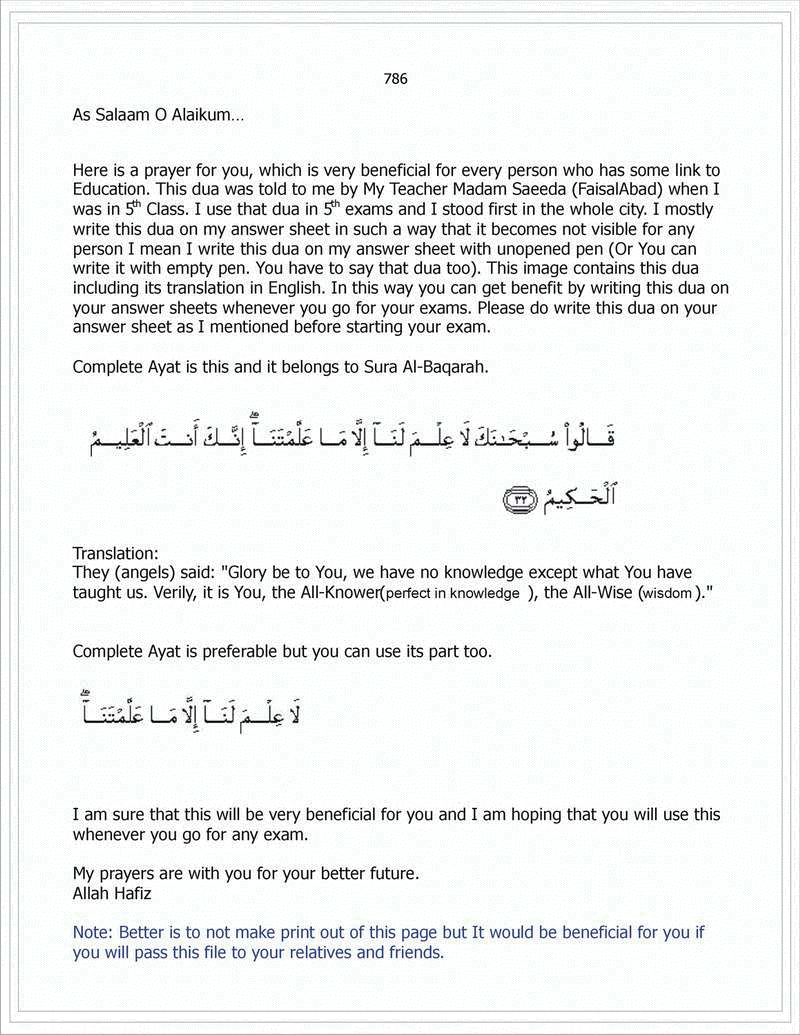 786
As Salaam O Alaikum...
Here is a prayer for you, which is very beneficial for every person who has some link to
Education. This dua was told to me by My Teacher Madam Saeeda (FaisalAbad) when I
was in 5th Class. I use that dua in 5th exams and I stood first in the whole city. I mostly
write this dua on my answer sheet in such a way that it becomes not visible for any
person I mean I write this dua on my answer sheet with unopened pen (Or You can
write it with empty pen. You have to say that dua too). This image contains this dua
including its translation in English. In this way you can get benefit by writing this dua on
your answer sheets whenever you go for your exams. Please do write this dua on your
answer sheet as I mentioned before starting your exam.
Complete Ayat is this and it belongs to Sura Al-Baqarah.
قَالُواْ سُبْحَـٰنَكَ لَا عِلْمَ لَنَآ إِلَّا مَا عَلَّمْتَنَآ ۖ إِنَّكَ أَنتَ ٱلْعَلِيمُ
ٱلْحَكِيمُ ٣٢
Translation:
They (angels) said: "Glory be to You, we have no knowledge except what You have
taught us. Verily, it is You, the All-Knower(perfect in knowledge ), the All-Wise (wisdom )."
Complete Ayat is preferable but you can use its part too.
لَا عِلْمَ لَنَآ إِلَّا مَا عَلَّمْتَنَآ ۖ
I am sure that this will be very beneficial for you and I am hoping that you will use this
whenever you go for any exam.
My prayers are with you for your better future.
Allah Hafiz
Note: Better is to not make print out of this page but It would be beneficial for you if
you will pass this file to your relatives and friends.